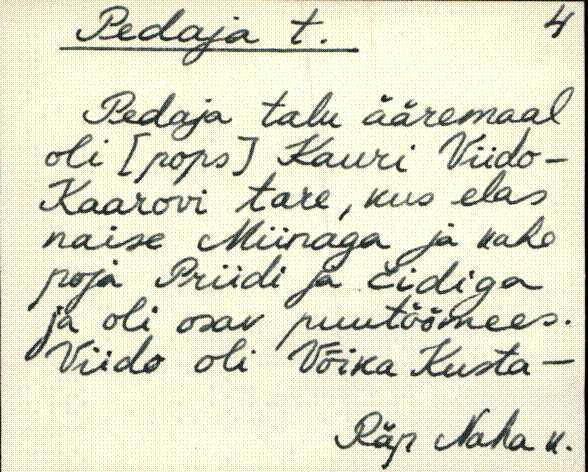 Pedaja t. 4
Pedaja talu ääremaal
oli [pops] Kauri Viido-
Kaarovi tare, kus elas
naise Miinaga ja kahe
poja Priidi ja Eidiga
ja oli osav puutöömees.
Viido oli Võika Kusta-
Räp Naha k.